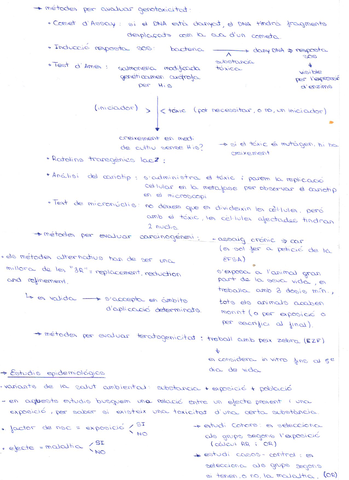 → mètodes per avaluar genotoxicitat
• Comet d'Assay : si el DNA està danyat, el DNA tindrà fragments
desplaçats com la cua d'un cometa
• Inducció resposta SOS: bacteria → dany DNA → resposta SOS
substància tòxica
visible per l'expressió d'enzims
• Test d'Ames : salmonera modificada genèticament auxòtrofa per His
(iniciador) > < tòxic (per necessitar, o no, un iniciador)
creixement en medi de cultiu sense His? → si el tòxic és mutàgen, hi ha creixement
• Ratolins transgènics lacZ :
• Anàlisi del cariotip : s'administra el tòxic i parem la replicació
cel·lular en la metafase per observar el cariotip
en el microscopi
• Test de micronuclis : no deixem que es divideixin les cèl·lules, però
amb el tòxic, les cèl·lules afectades tindran
2 nuclis
→ mètodes per avaluar carcinogènesi : → assaig crònic → car
(es sol fer a petició de la EFSA)
• els mètodes alternatius han de ser una
millora de les "3R" : replacement, reduction
and refinement.
↳ es valida → s'accepta en àmbits
d'aplicació determinats
s'exposa a l'animal gran
part de la seva vida, es
treballa amb 3 dosis mín.,
tots els animals acaben
morint (o per exposició o
per sacrifici al final).
→ mètodes per avaluar teratogenicitat : treball amb peix zebra, (EZF)
es considera in vitro fins al 5è
dia de vida
→ Estudis epidemiològics
- variants de la salut ambiental: substància + exposició + població
- en aquests estudis busquem una relació entre un efecte present i una
exposició, per saber si existeix una toxicitat d'una certa substància.
• factor de risc = exposició SI NO
• efecte = malaltia SI NO
→ estudi cohorts: es selecciona
els grups segons l'exposició
(càlcul RR i OR)
→ estudi casos-control : es
selecciona els grups segons
si tenen, o no, la malaltia. (OR)